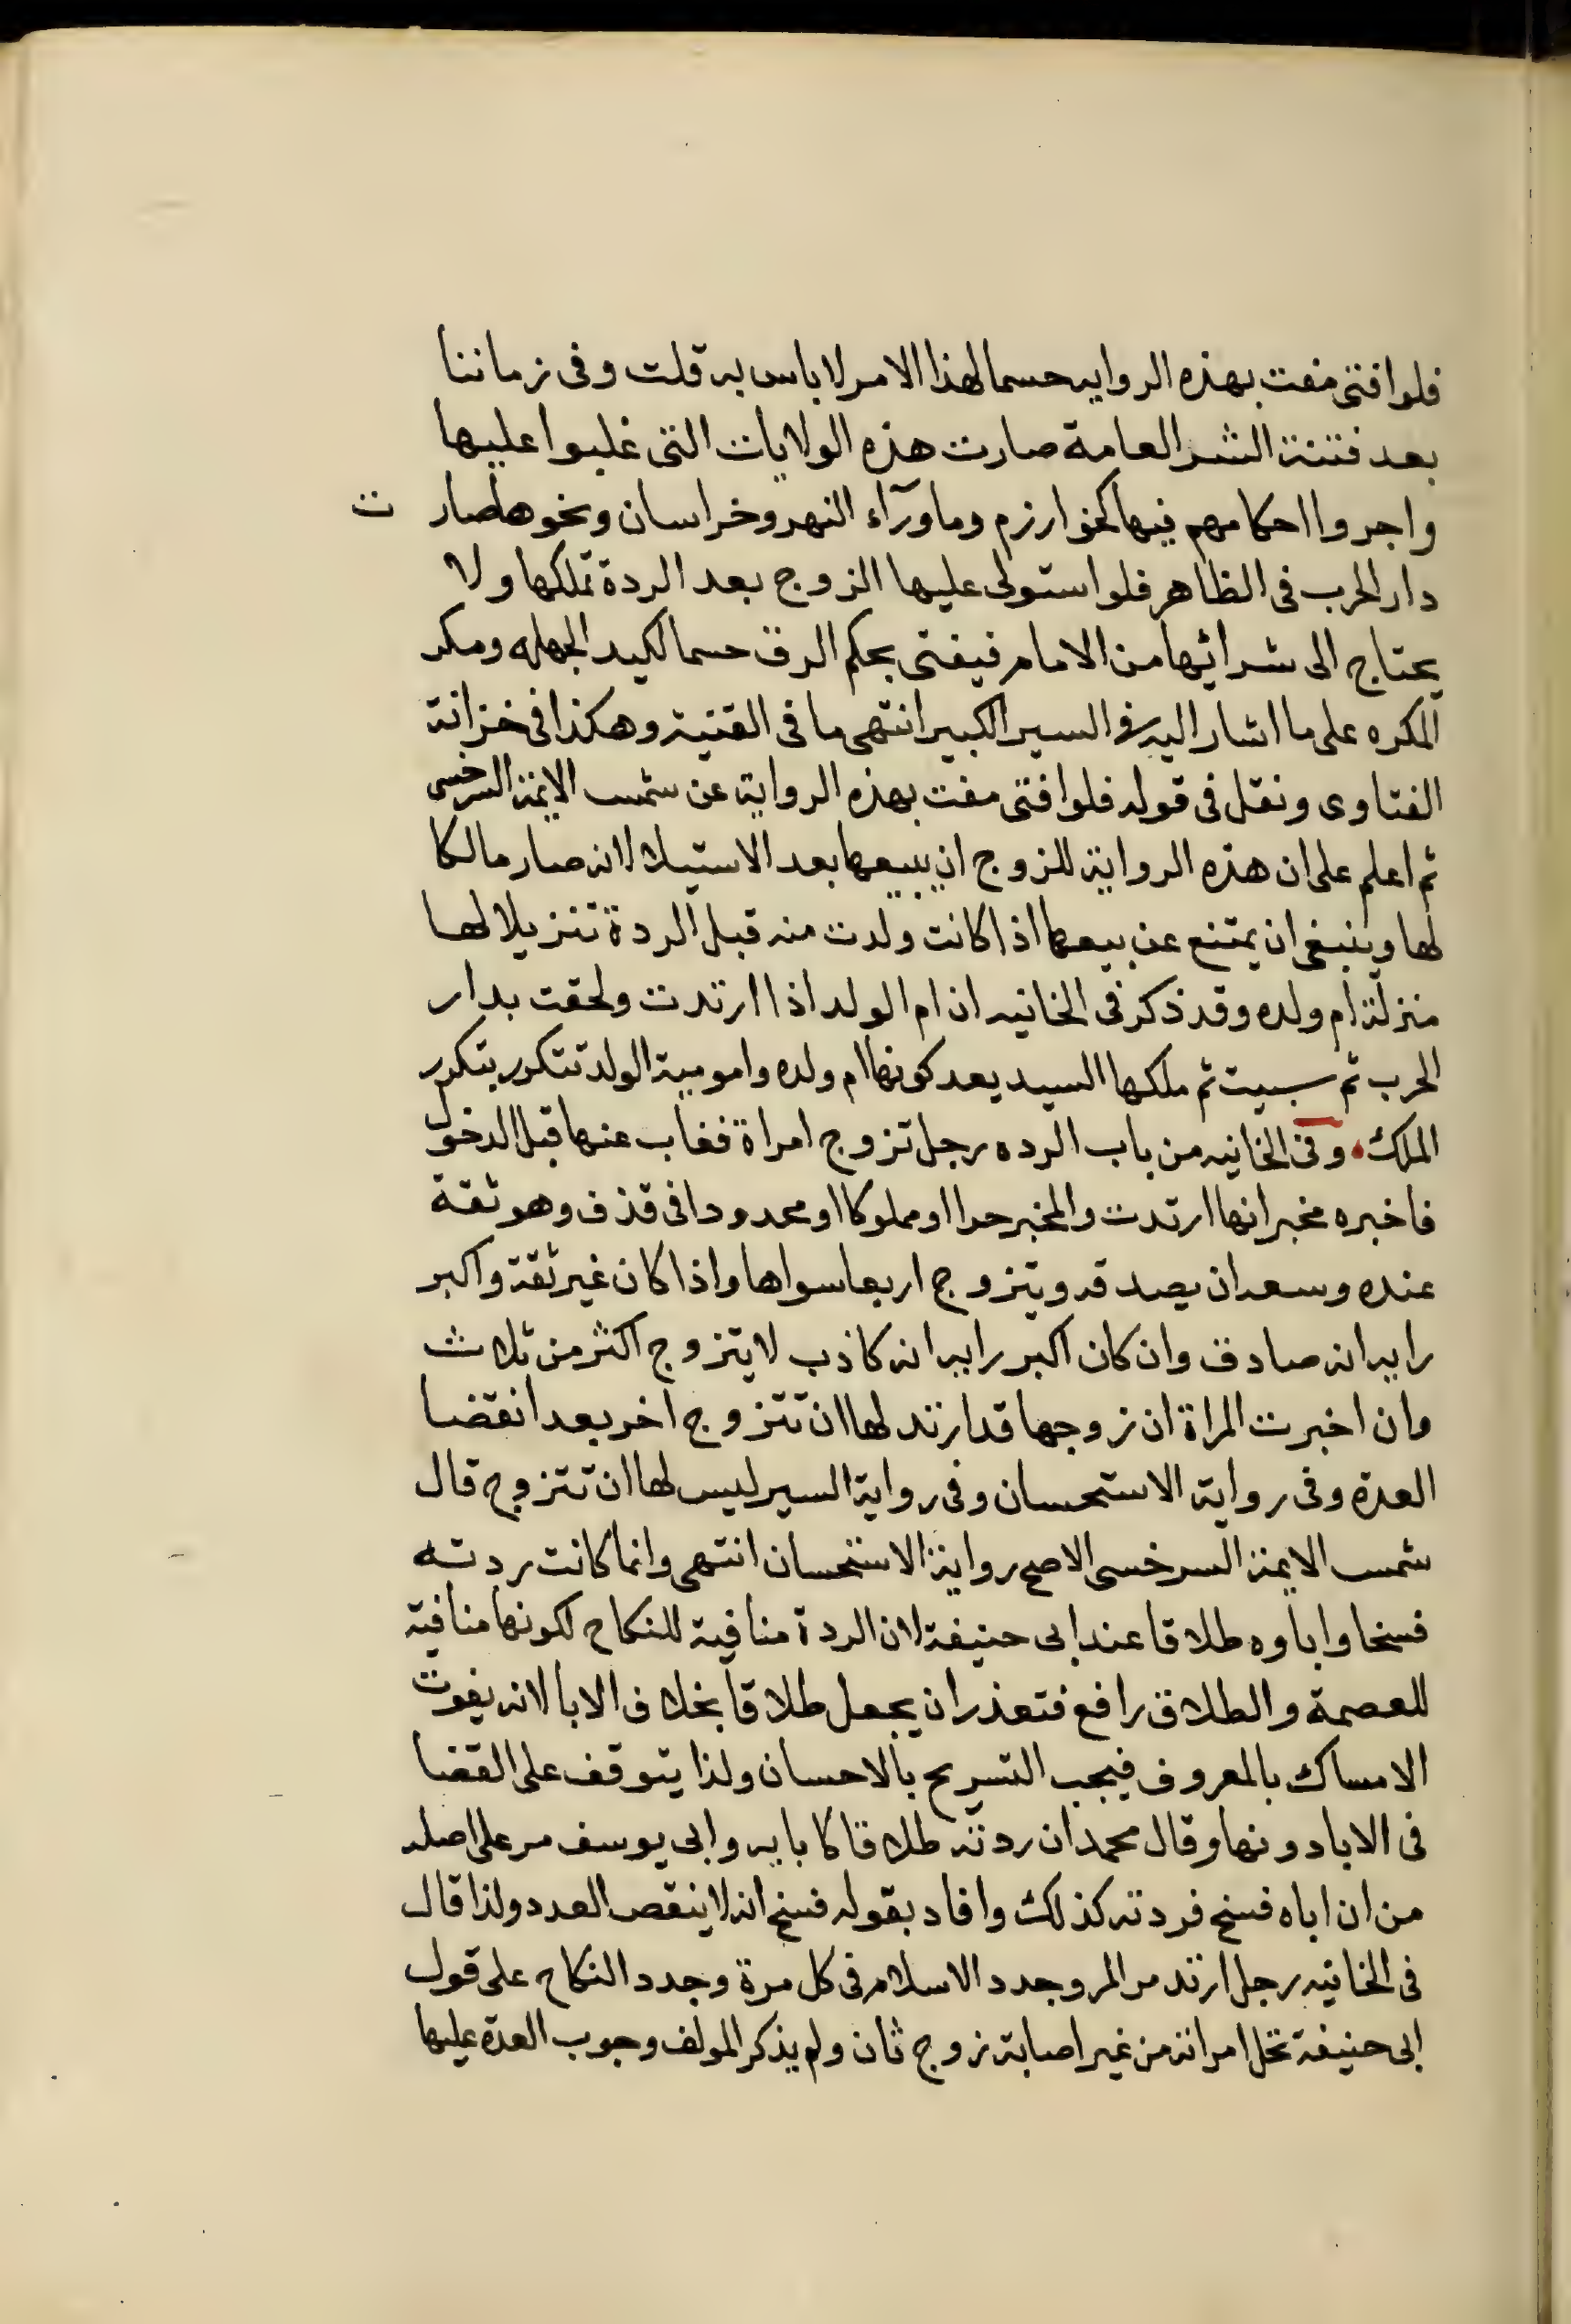 فلوافتى مفت بهذه الروايه حسما لهذا الامر لا باس به قلت وفى زماننا
بعد فتنة التتر العامة صارت هذه الولايات التى غلبوا عليها
واجروا احكامهم فيها كخوارزم وما ورآء النهر وخراسان ونحوها صارت
دار الحرب فى الظاهر فلو استولى عليها الزوج بعد الردة تملكها ولا
يحتاج الى شرائها من الامام فيفتى بحكم الرق حسما لكيد الجهله ومكر
المكره على ما اشار اليه فى السير الكبير انتهى ما فى القنية وهكذا فى خزانة
الفتاوى ونقل فى قوله فلوافتى مفت بهذه الرواية عن شمس الايمة السرخسى
ثم اعلم على ان هذه الرواية للزوج ان يبيعها بعد الاستيلا لانه صار مالكا
لها وينبغى ان يمتنع عن بيعها اذا كانت ولدت منه قبل الردة تنزيلا لها
منزلة ام ولده وقد ذكر فى الخانيه ان ام الولد اذا ارتدت ولحقت بدار
الحرب ثم سبيت ثم ملكها السيد يعد كونها ام ولده وامومية الولد تتكرر بتكرر
الملك • وفى الخانيه من باب الرده رجل تزوج امراة فغاب عنها قبل الدخول
فاخبره مخبر انها ارتدت والمخبر حرا او مملوكا او محدودا فى قذف وهو ثقة
عنده وسعه ان يصدقه ويتزوج اربعا سواها واذا كان غير ثقة واكبر
رايه انه صادق وان كان اكبر رايه انه كاذب لا يتزوج اكثر من ثلاث
وان اخبرت المراة ان زوجها قد ارتد لها ان تتزوج اخر بعد انقضا
العدة وفى رواية الاستحسان وفى رواية السير ليس لها ان تتزوج قال
شمس الايمة السرخسى الاصح رواية الاستحسان انتهى وانما كانت ردته
فسخا واباوه طلاقا عند ابى حنيفة لان الردة منافية للنكاح لكونها منافية
للعصمة والطلاق رافع فتعذر ان يجعل طلاقا بخلاف الابا لانه يفوت
الامساك بالمعروف فيجب التسريح بالاحسان ولذا يتوقف على القضا
فى الابا دونها وقال محمد ان ردته طلاقا كابايه وابى يوسف مر على اصله
من ان اباه فسخ فردته كذلك وافاد بقوله فسخ انه لا ينقص العدد ولذا قال
فى الخانيه رجل ارتد مرالمر وجدد الاسلام فى كل مرة وجدد النكاح على قول
ابى حنيفة تحل امراته من غير اصابة زوج ثان ولم يذكر المولف وجوب العدة عليها